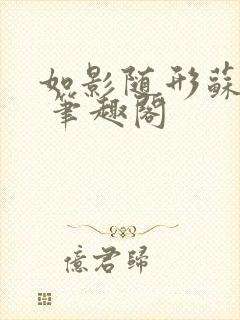 如影随形蘇
筆趣閣
億君歸